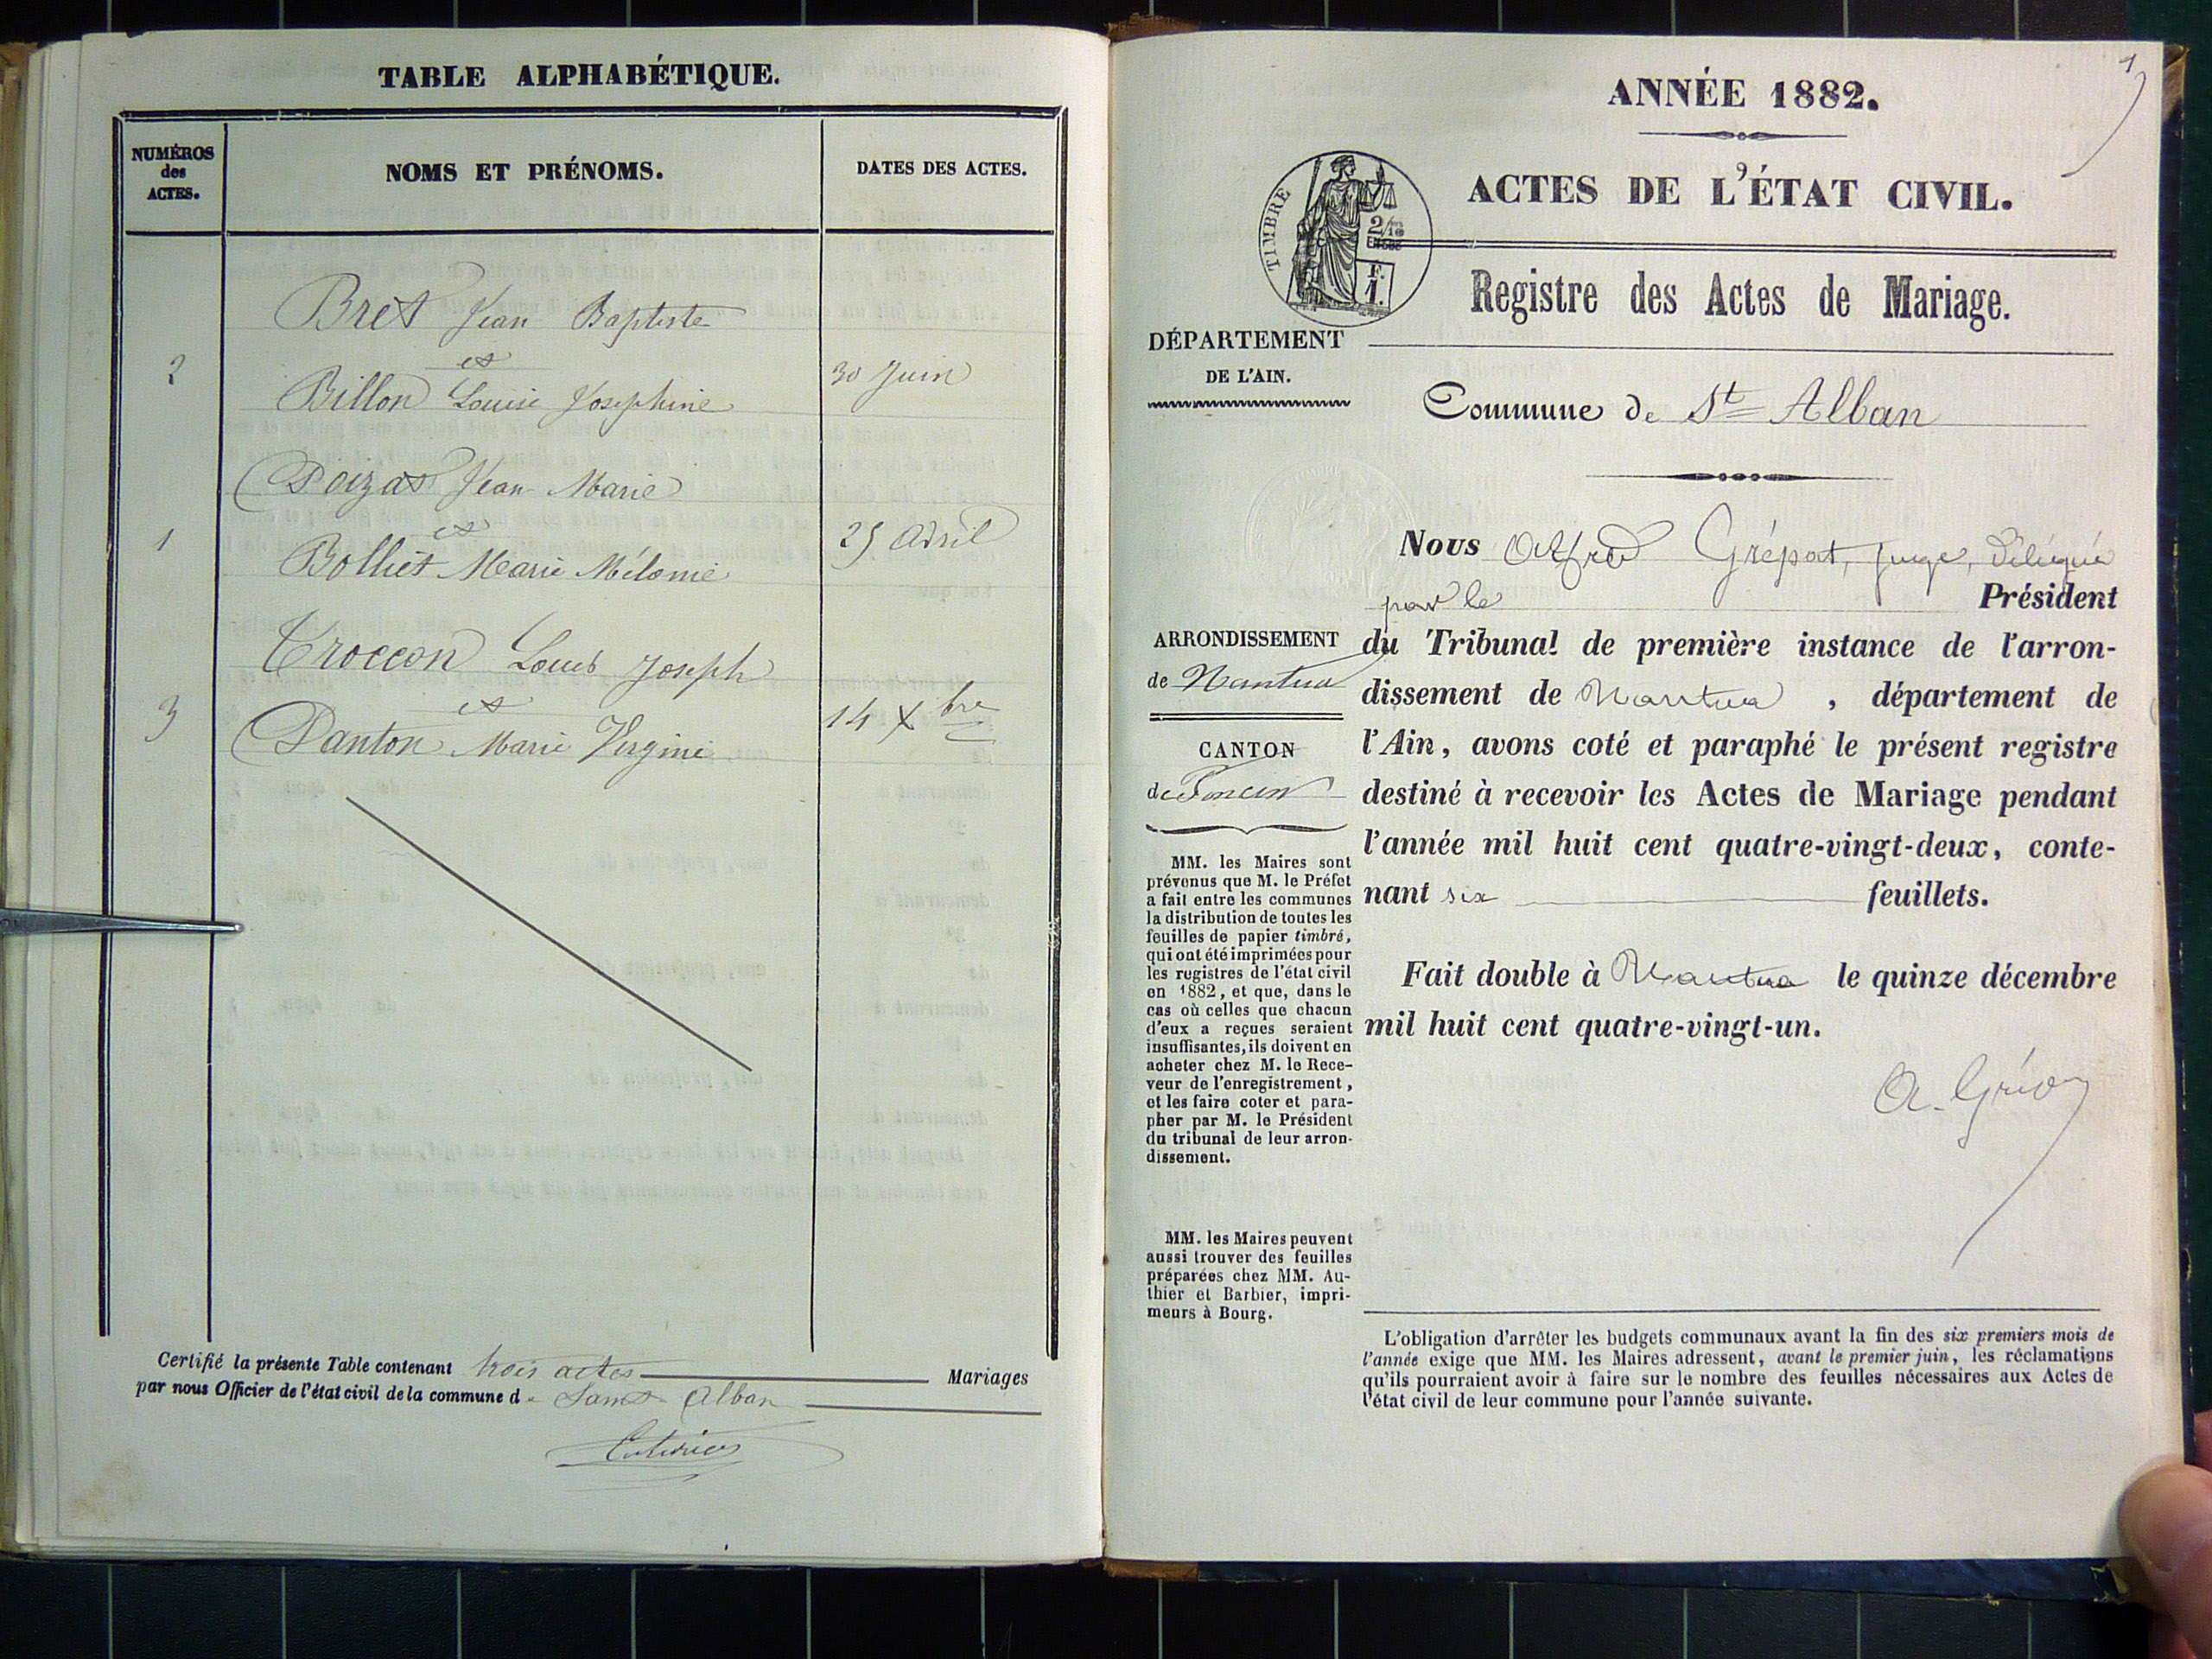 TABLE ALPHABÉTIQUE.
NUMÉROS
des
ACTES.
NOMS ET PRÉNOMS.
DATES DES ACTES.
Bret Jean Baptiste
et
2
30 Juin
Billon Louise Joséphine
Jean Marie
et
1
25 Avril
Bolliet Marie
Troccon Louis Joseph
et
3
14 Xbre
Danton Marie Virginie
Certifié la présente Table contenant trois actes Mariages
par nous Officier de l'état civil de la commune de Saint Alban
1
ANNÉE 1882.
ACTES DE L'ÉTAT CIVIL.
TIMBRE
2/10
EN SUS
F.
1.
Registre des Actes de Mariage.
DÉPARTEMENT
DE L'AIN.
Commune de St Alban
Nous Alfred juge, délégué
par le Président
du Tribunal de première instance de l'arron-
dissement de Nantua, département de
l'Ain, avons coté et paraphé le présent registre
destiné à recevoir les Actes de Mariage pendant
l'année mil huit cent quatre-vingt-deux, conte-
nant six feuillets.
Fait double à Nantua le quinze décembre
mil huit cent quatre-vingt-un.
ARRONDISSEMENT
de Nantua
CANTON
de Poncin
MM. les Maires sont
prévenus que M. le Préfet
a fait entre les communes
la distribution de toutes les
feuilles de papier timbré,
qui ont été imprimées pour
les registres de l'état civil
en 1882, et que, dans le
cas où celles que chacun
d'eux a reçues seraient
insuffisantes, ils doivent en
acheter chez M. le Rece-
veur de l'enregistrement,
et les faire coter et para-
pher par M. le Président
du tribunal de leur arron-
dissement.
MM. les Maires peuvent
aussi trouver des feuilles
préparées chez MM. Au-
thier et Barbier, impri-
meurs à Bourg.
L'obligation d'arrêter les budgets communaux avant la fin des six premiers mois de
l'année exige que MM. les Maires adressent, avant le premier juin, les réclamations
qu'ils pourraient avoir à faire sur le nombre des feuilles nécessaires aux Actes de
l'état civil de leur commune pour l'année suivante.